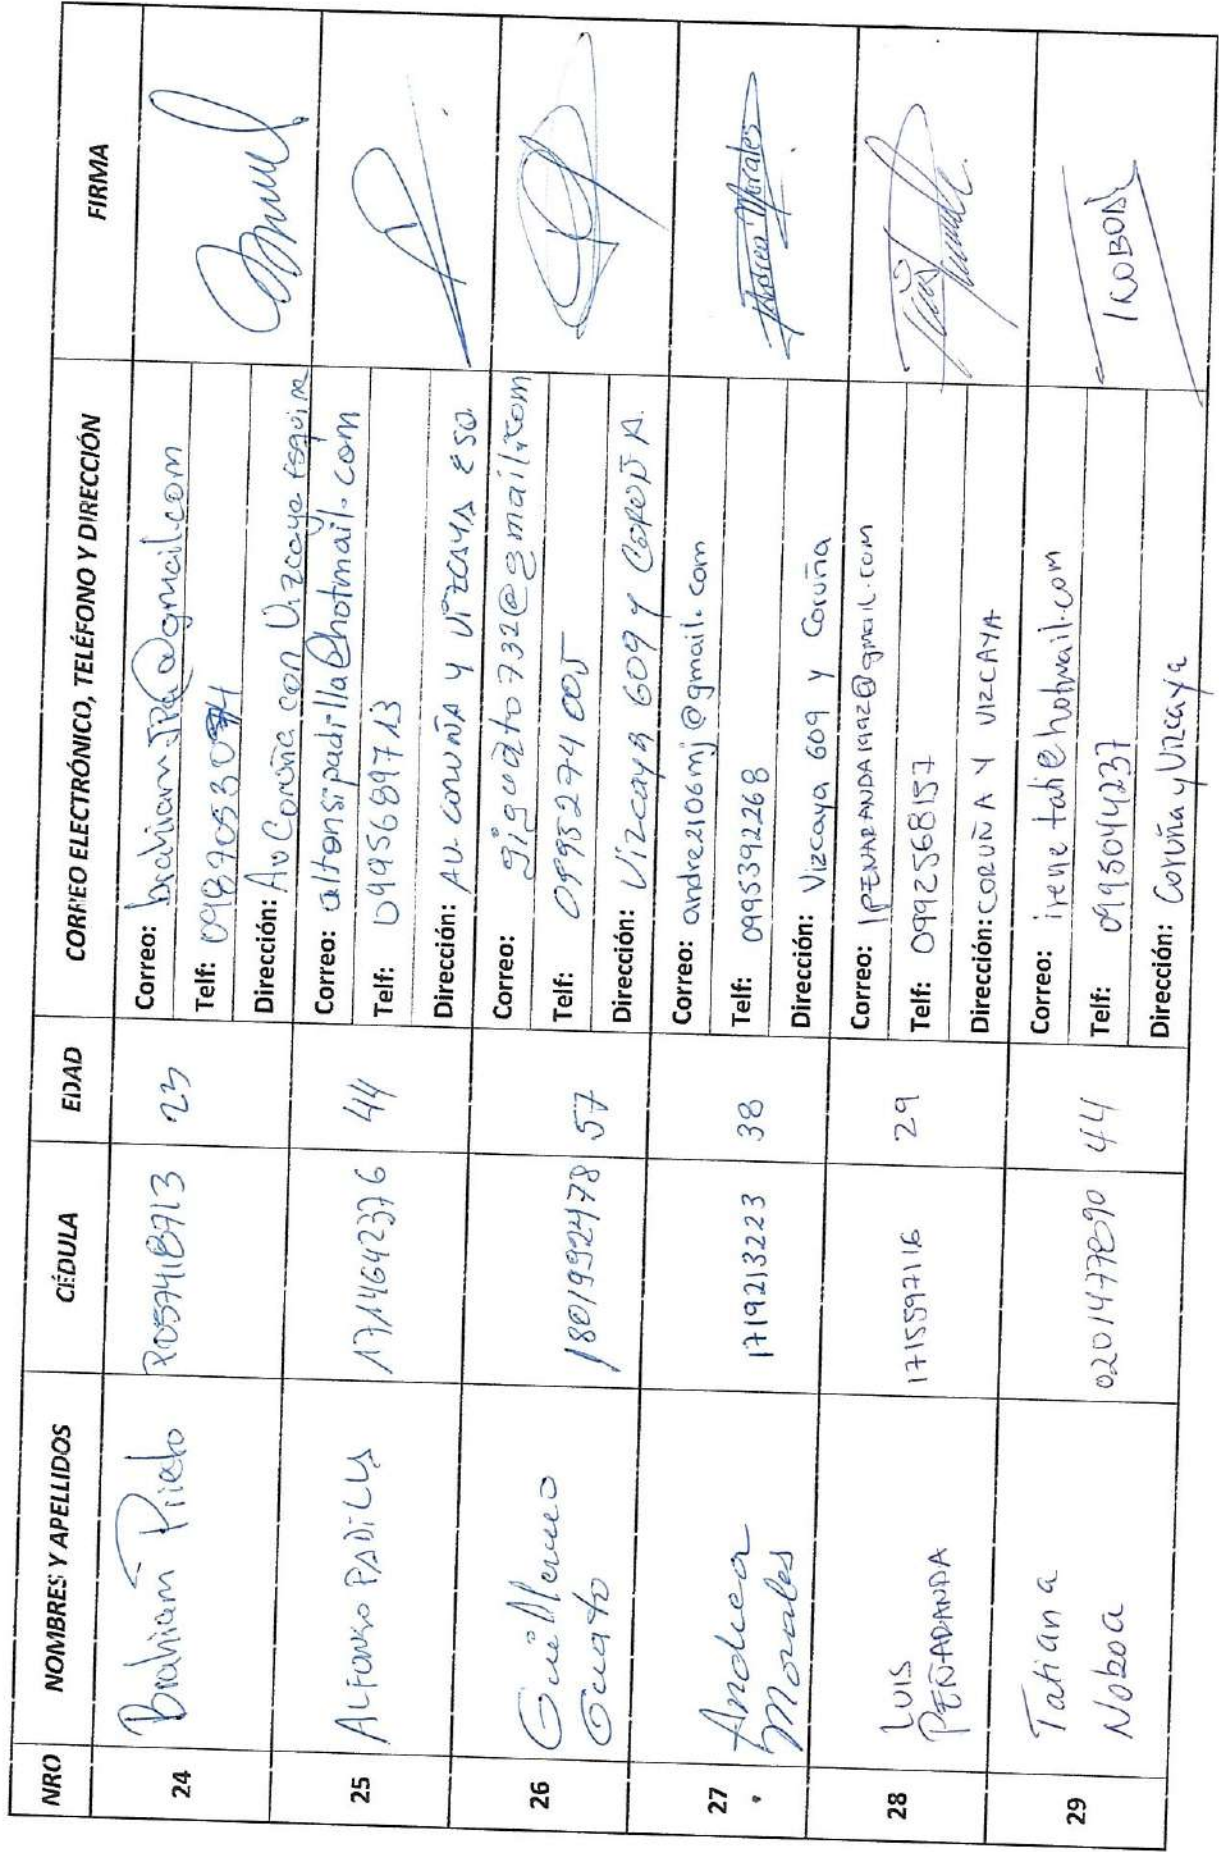 NRO NOMBRES Y APELLIDOS CÉDULA EDAD CORREO ELECTRÓNICO, TELÉFONO Y DIRECCIÓN FIRMA
24 Brahiam Prieto 23
Correo:
Telf:
Dirección: Av Coruña con Vizcaya esquina
25 ALFONSO PADILLA 1714642376 44
Correo: alfonsipadilla@hotmail.com
Telf: 0995689713
Dirección: AV. CORUÑA Y VIZCAYA ESQ.
26 Guillermo
Guato 1801992478 57
Correo: giguato732@gmail.com
Telf: 0995274005
Dirección: Vizcaya 609 y CORUÑA.
27 Andrea
Morales 1719213223 38
Correo: andre2106mj@gmail.com
Telf: 0995392268
Dirección: Vizcaya 609 y Coruña
Andrea Morales
28 LUIS
PEÑARANDA 1715597116 29
Correo: lPENARANDA1992@gmail.com
Telf: 0992568157
Dirección: CORUÑA Y VIZCAYA
29 Tatiana
Noboa 0201477690 44
Correo: irene tati@hotmail.com
Telf: 0995044237
Dirección: Coruña y Vizcaya
TNOBOA